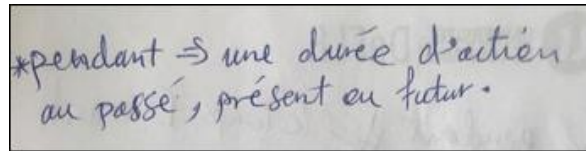 *pendant => une durée d'action
au passé, présent ou futur.